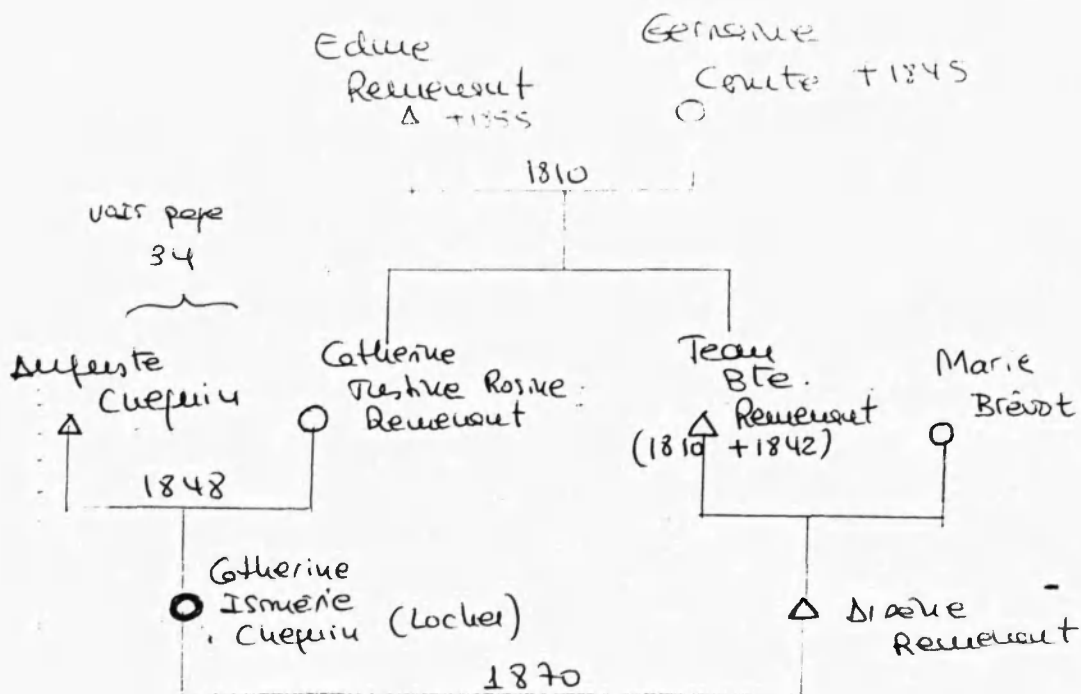 Edme
Remenant
+1855
Germaine
Comte +1845
1810
voir page
34
Auguste
Chequin
Catherine
Justine Rosine
Remenant
Jean
Bte.
Remenant
(1810 +1842)
Marie
Brévot
1848
Catherine
Ismérie
Chequin (Locher)
Remenant
1870